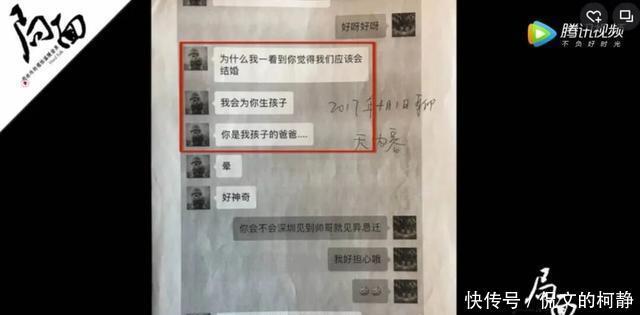 局面
腾讯视频
不负好时光
好呀好呀
为什么我一看到你觉得我们应该会
结婚
我会为你生孩子
你是我孩子的爸爸....
2017年4月1日聊
天内容
晕
好神奇
你会不会深圳见到帅哥就见异思迁
我好担心哦
局面
快传号·悦文的柯静